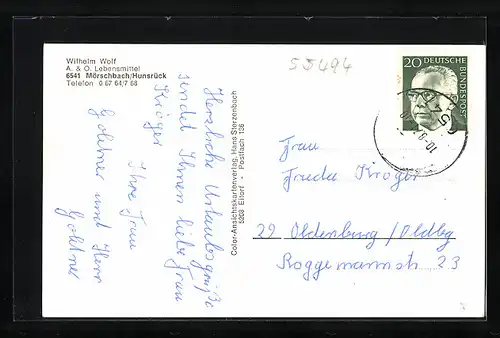 Wilhelm Wolf
A. & O. Lebensmittel
6541 Mörschbach/Hunsrück
Telefon 0 67 64/7 68
55494
20 DEUTSCHE
BUNDESPOST
Herzliche Urlaubsgrüße
sendet Ihnen liebe Frau
Kröger
Ihre Frau
Golchner und Herr
Golchner
Color-Ansichtskartenverlag, Hans Sterzenbach
5208 Eitorf - Postfach 136
Frau
Frieda Kröger
29 Oldenburg/Oldbg
Roggemannstr 23